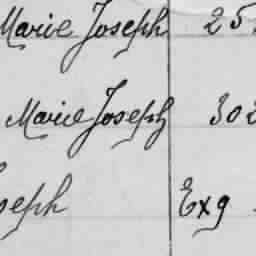 Marie Joseph 25
Marie Joseph 302
seph Exg